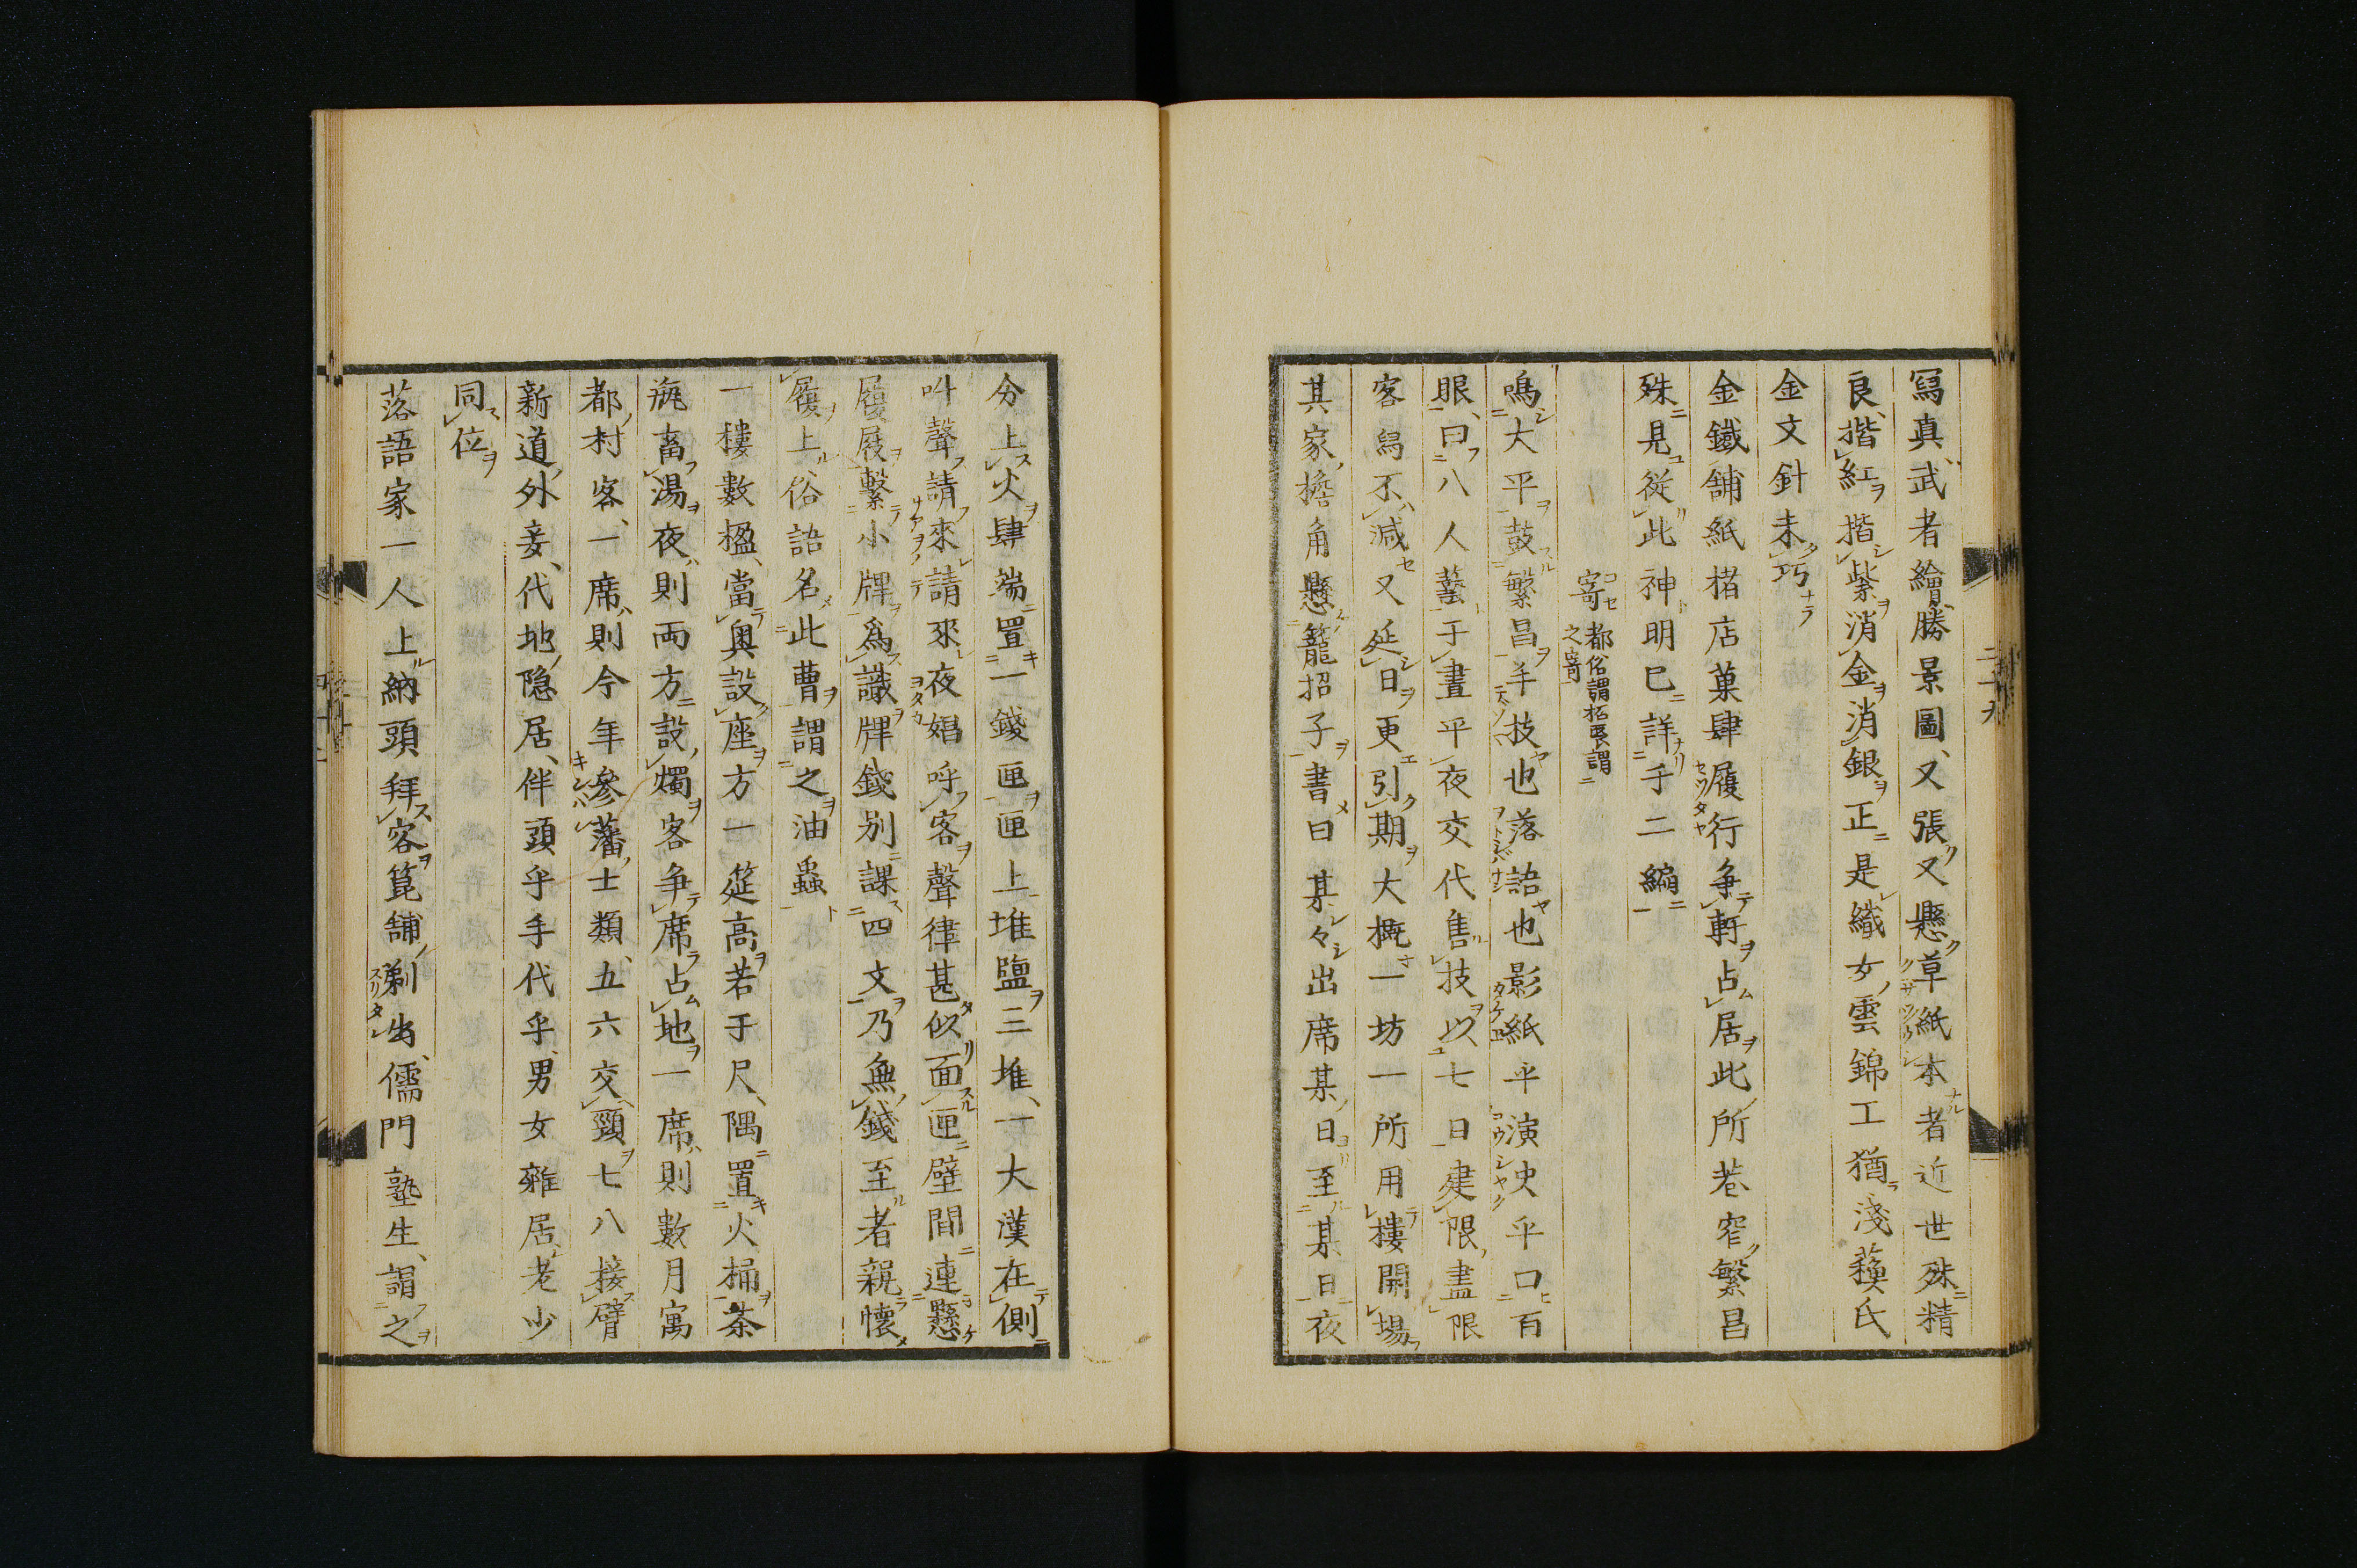 寫真武者繪勝景圖又張又懸草紙本者近世殊精
良揩紅揩紫消金消銀正是織女雲錦工猶淺薐氏
金文針未巧
金鐵舗紙楮店菓肆履行争軒占居此所巷窄繁昌
殊見従此神明已詳手二編
寄 都俗謂招要謂之寄
鳴大平鼓繁昌手技也落語也影紙乎演史乎口百
眼曰八人藝于晝乎夜交代售技以七日建限盡限
客舄不減又延日更引期大概一坊一所用樓開場
其家擔角懸籠招子書曰某々出席某日至某日夜
分上火肆端置一錢匣匣上堆鹽三堆一大漢在側
叫聲請來請來夜娼呼客聲律甚似面匣壁間連懸
履屐繋小牌爲識牌錢別課四文乃無錢至者親懷
履上俗語名此曹謂之油蟲
一樓數楹當奥設座方一筵高若于尺隅置火桶茶
瓶畜湯夜則両方設燭客争席占地一席則數月寓
都村客一席則今年參藩士類五六交頸七八接臂
新道外妾代地隠居伴頭乎手代乎男女雜居老少
同位
落語家一人上納頭拜客篦舗剃出儒門塾生謂之